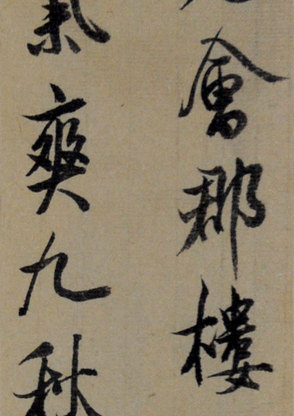 會郡樓
氣爽九秋